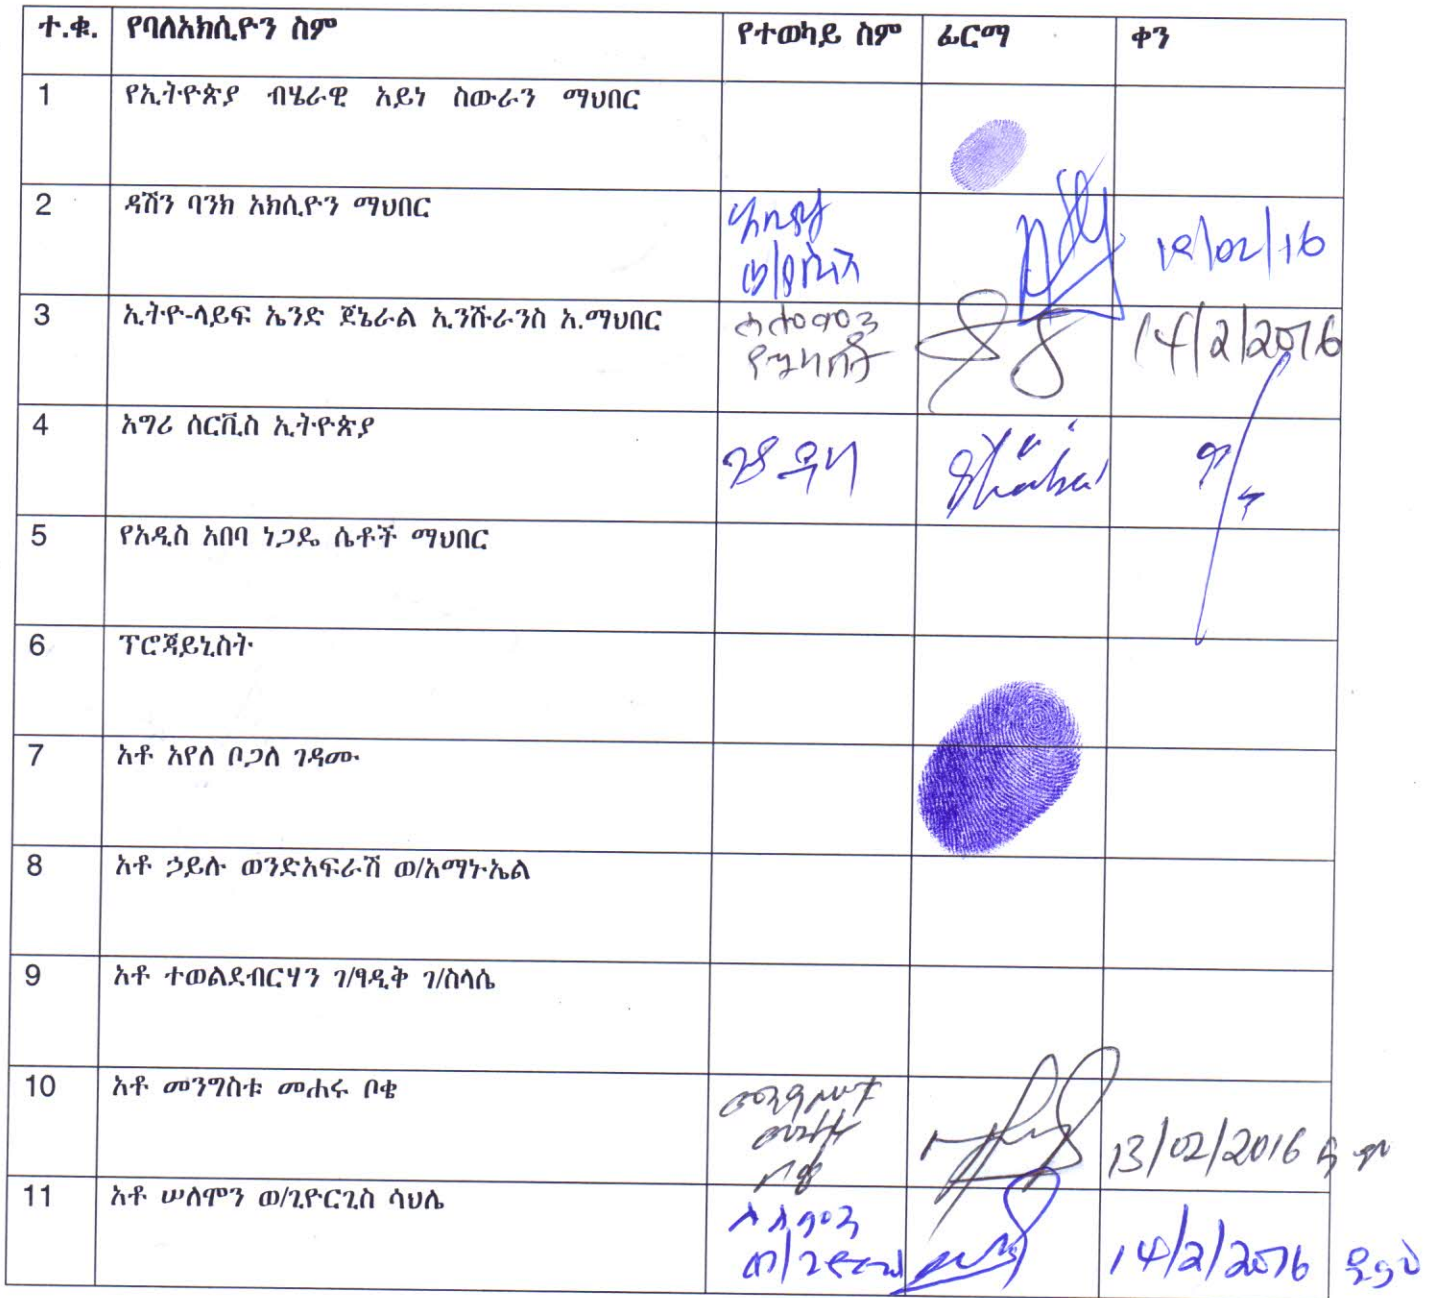 ተ.ቁ. የባለአክሲዮን ስም የተወካይ ስም ፊርማ ቀን
1 የኢትዮጵያ ብሄራዊ አይነ ስውራን ማህበር
2 ዳሽን ባንክ አክሲዮን ማህበር 12/02/16
3 ኢትዮ-ላይፍ ኤንድ ጀኔራል ኢንሹራንስ አ.ማህበር 14/2/2016
4 አግሪ ሰርቪስ ኢትዮጵያ
5 የአዲስ አበባ ነጋዴ ሴቶች ማህበር
6 ፕሮጃይኒስት
7 አቶ አየለ ቦጋለ ገዳሙ
8 አቶ ኃይሉ ወንድአፍራሽ ወ/አማኑኤል
9 አቶ ተወልደብርሃን ገ/ፃዲቅ ገ/ስላሴ
10 አቶ መንግስቱ መሐሩ ቦቄ 13/02/2016
11 አቶ ሠለሞን ወ/ጊዮርጊስ ሳህሌ 14/2/2016